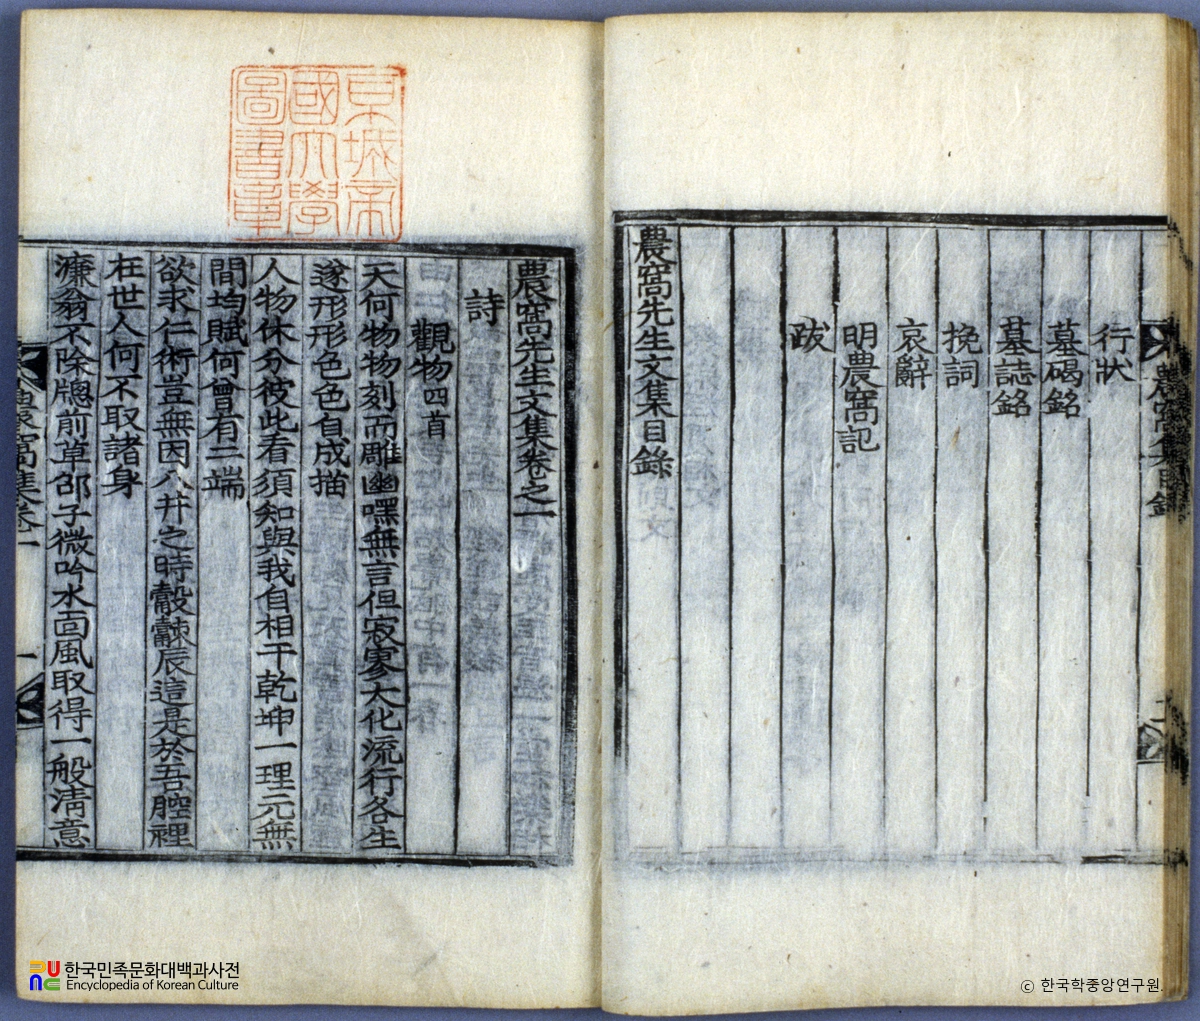 行狀
墓碣銘
墓誌銘
挽詞
哀辭
明農窩記
跋
農窩先生文集目錄
農窩集目錄
二
京城帝
國大學
圖書章
農窩先生文集卷之一
詩
觀物四首
天何物物刻而雕幽嘿無言但寂寥大化流行各生
遂形形色色自成描
人物休分彼此看須知與我自相干乾坤一理元無
間均賦何曾有二端
欲求仁術豈無因入井之時觳觫辰這是於吾腔裡
在世人何不取諸身
濂翁不除牕前草邵子微吟水面風取得一般淸意
農窩集卷一
一
한국민족문화대백과사전
Encyclopedia of Korean Culture
ⓒ 한국학중앙연구원.